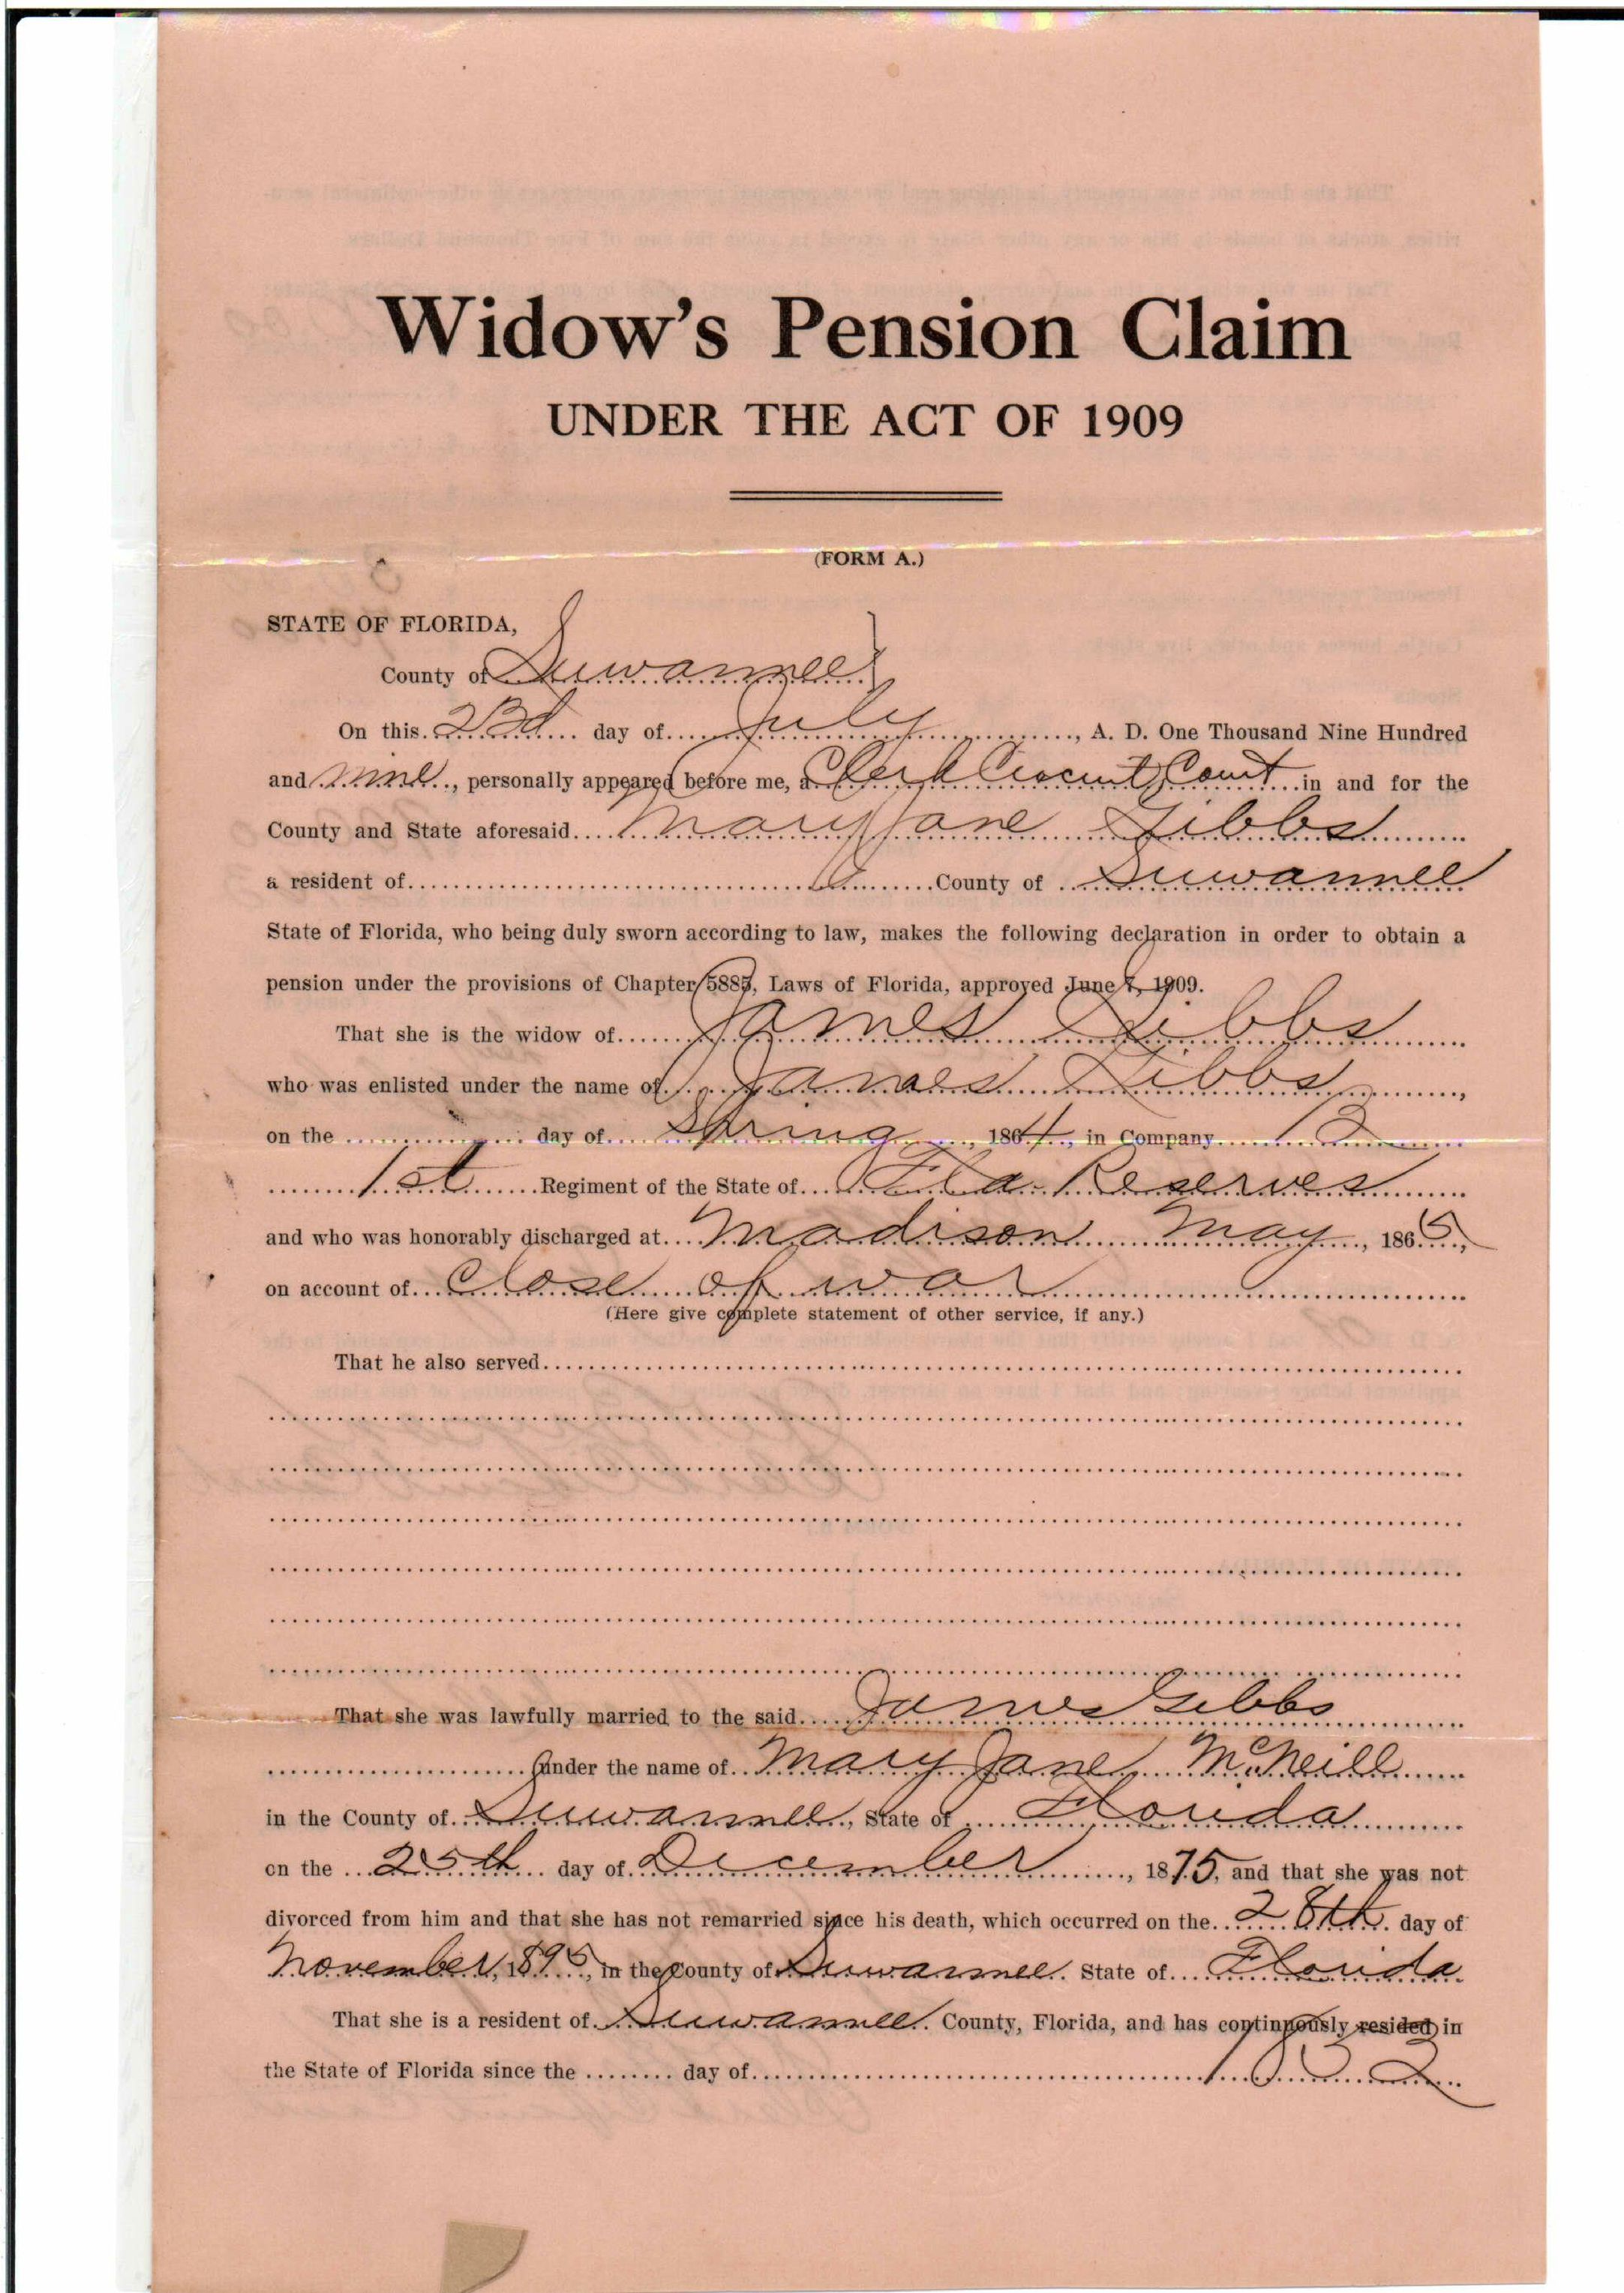 Widow's Pension Claim
UNDER THE ACT OF 1909
(FORM A.)
STATE OF FLORIDA,
County of Suwannee
On this 23d day of July, A. D. One Thousand Nine Hundred
and nine, personally appeared before me, a Clerk Circuit Court in and for the
County and State aforesaid Mary Jane Gibbs
a resident of County of Suwannee
State of Florida, who being duly sworn according to law, makes the following declaration in order to obtain a
pension under the provisions of Chapter 5885, Laws of Florida, approved June 7, 1909.
That she is the widow of James Gibbs
who was enlisted under the name of James Gibbs,
on the day of Spring, 1864, in Company
1st Regiment of the State of Fla Reserves
and who was honorably discharged at Madison May, 1865,
on account of Close of war
(Here give complete statement of other service, if any.)
That he also served
That she was lawfully married to the said James Gibbs
under the name of Mary Jane McNeill
in the County of Suwannee, State of Florida
on the 25th day of December, 1875, and that she was not
divorced from him and that she has not remarried since his death, which occurred on the 28th day of
November, 1895, in the County of Suwannee State of Florida
That she is a resident of Suwannee County, Florida, and has continuously resided in
the State of Florida since the day of 1852